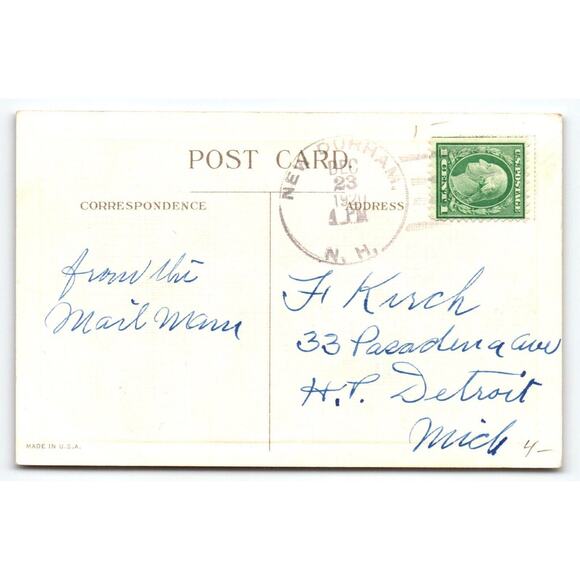 POST CARD
NEW DURHAM,
DEC
23
1 PM
N. H.
U.S. POSTAGE
1 CENT 1
CORRESPONDENCE
ADDRESS
from the
Mail Man
F Kirch
33 Pasadena ave
H.P. Detroit
Mich
4-
MADE IN U.S.A.